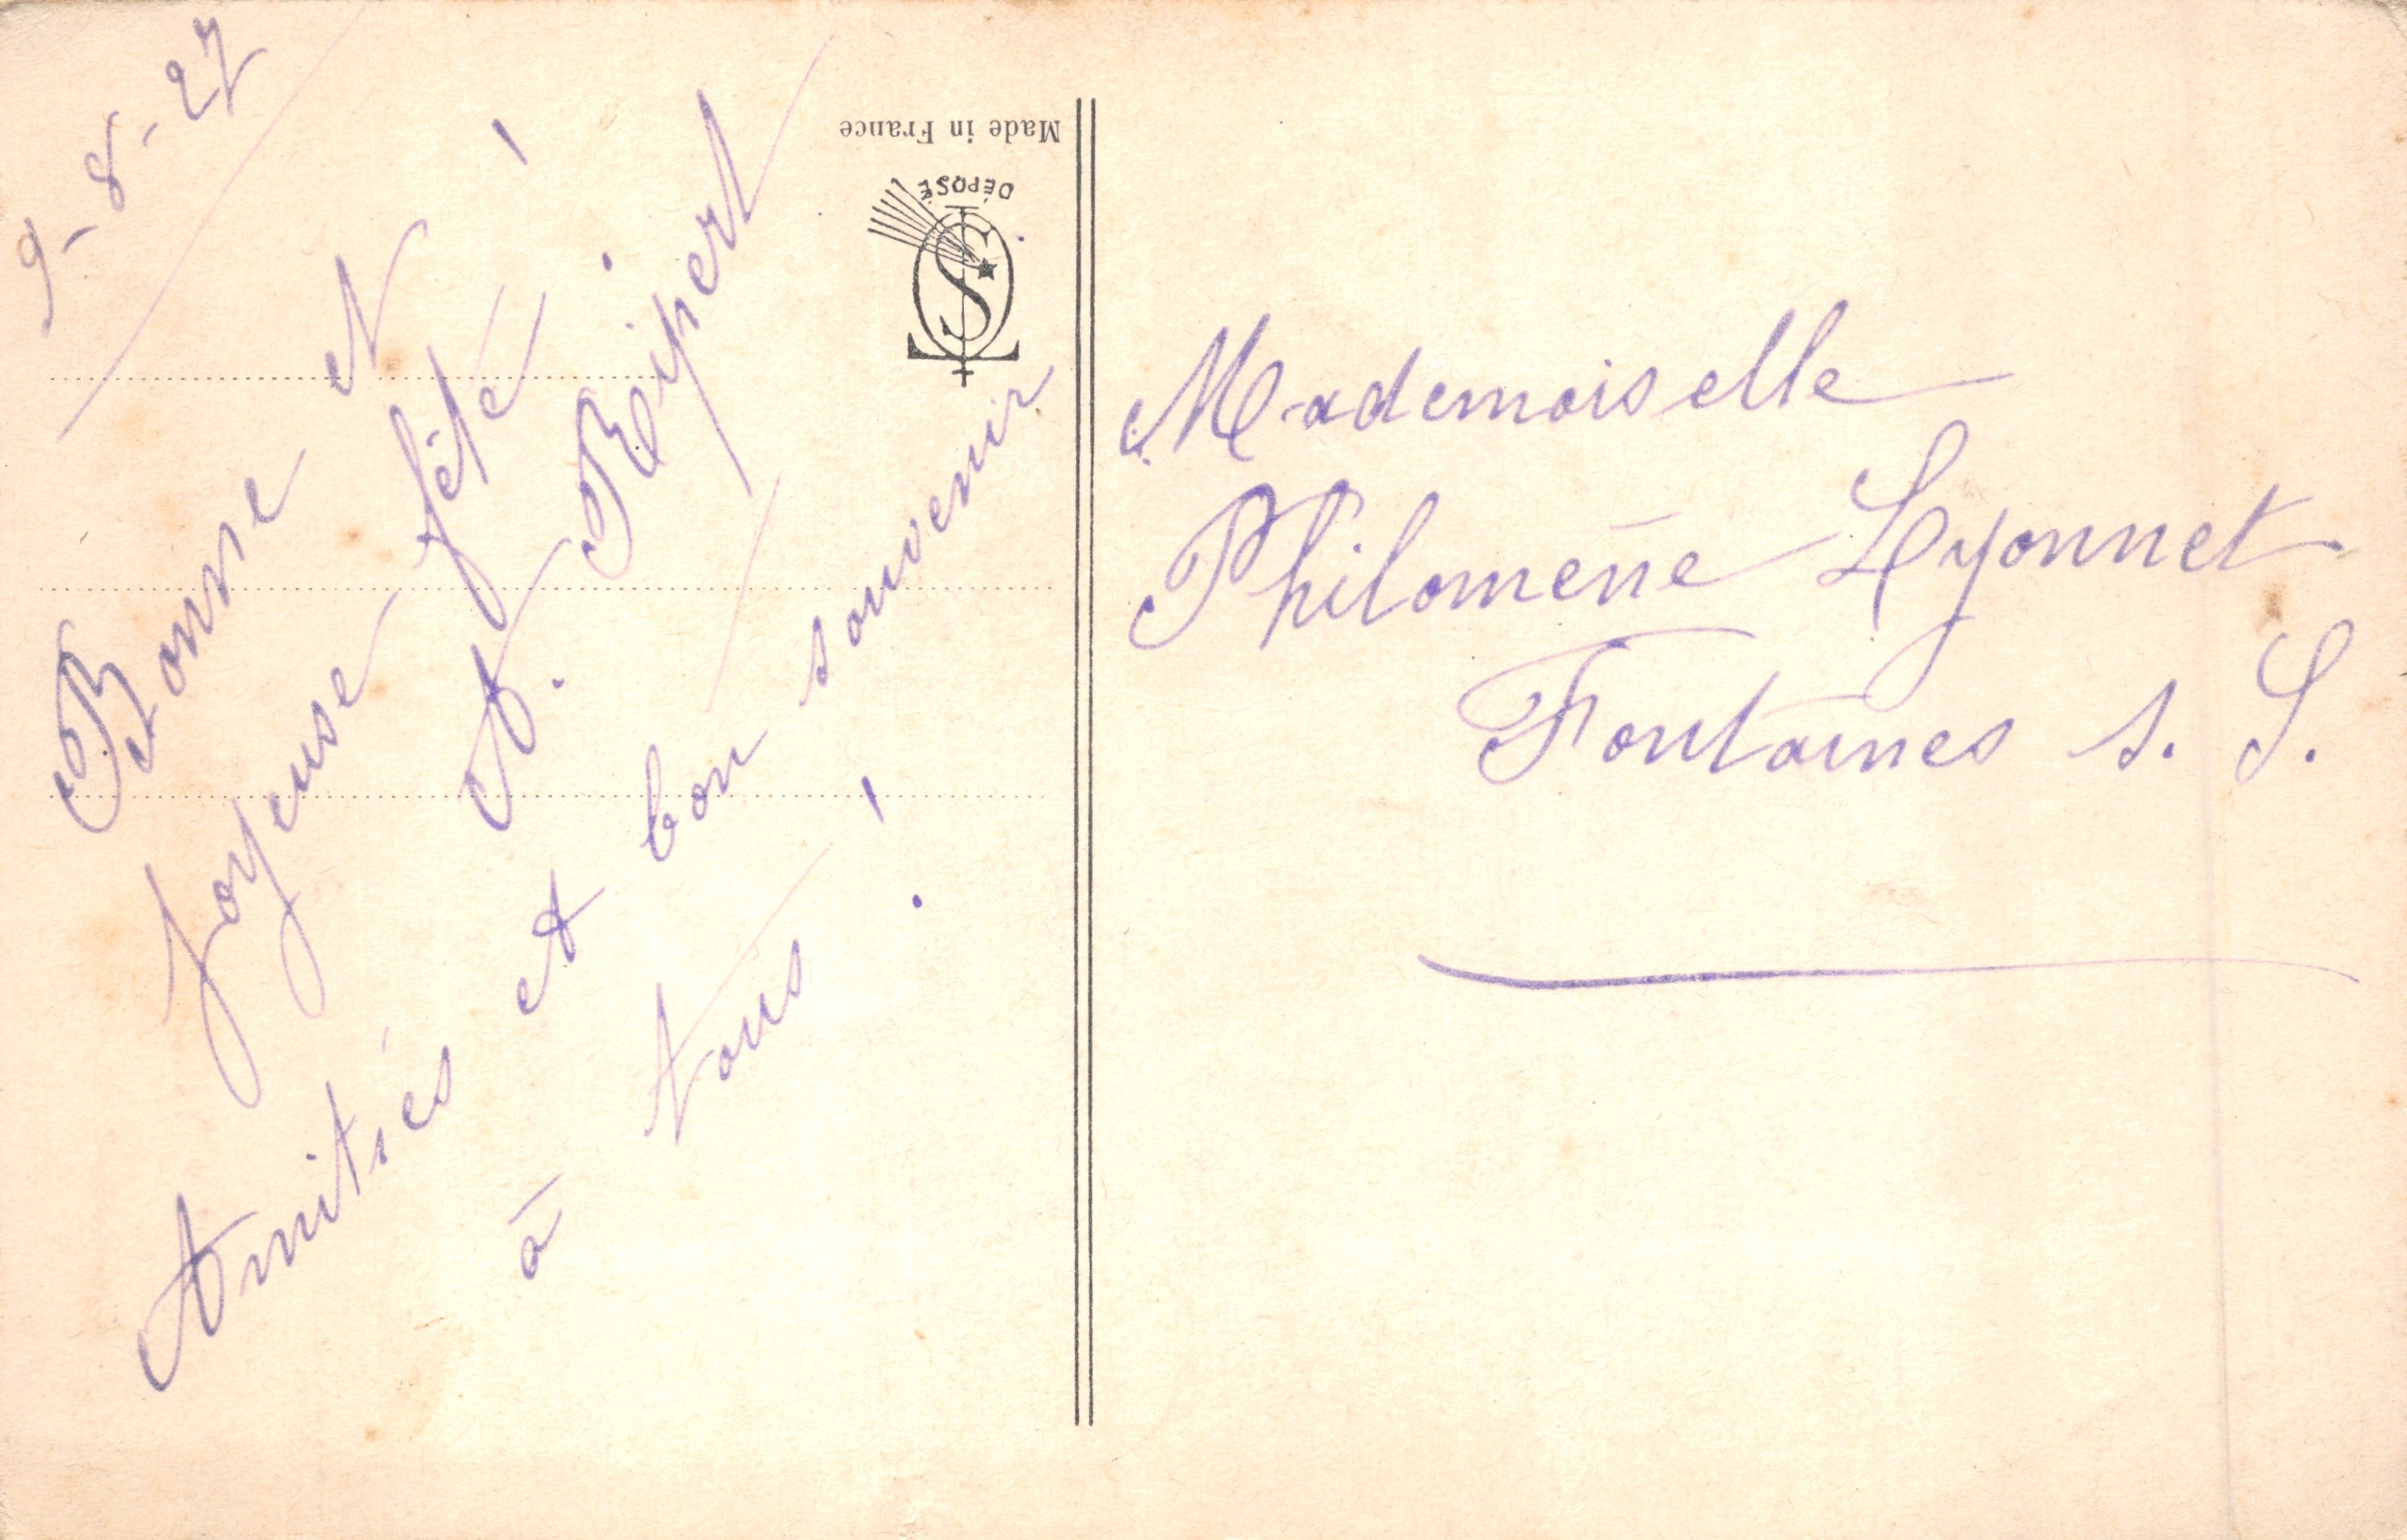 9-8-27
Bonne et
joyeuse fête !
A. Ripert
Amitiés et bon souvenir
à tous !
Made in France
DÉPOSÉ
Mademoiselle
Philomène Lyonnet
Fontaines s. S.